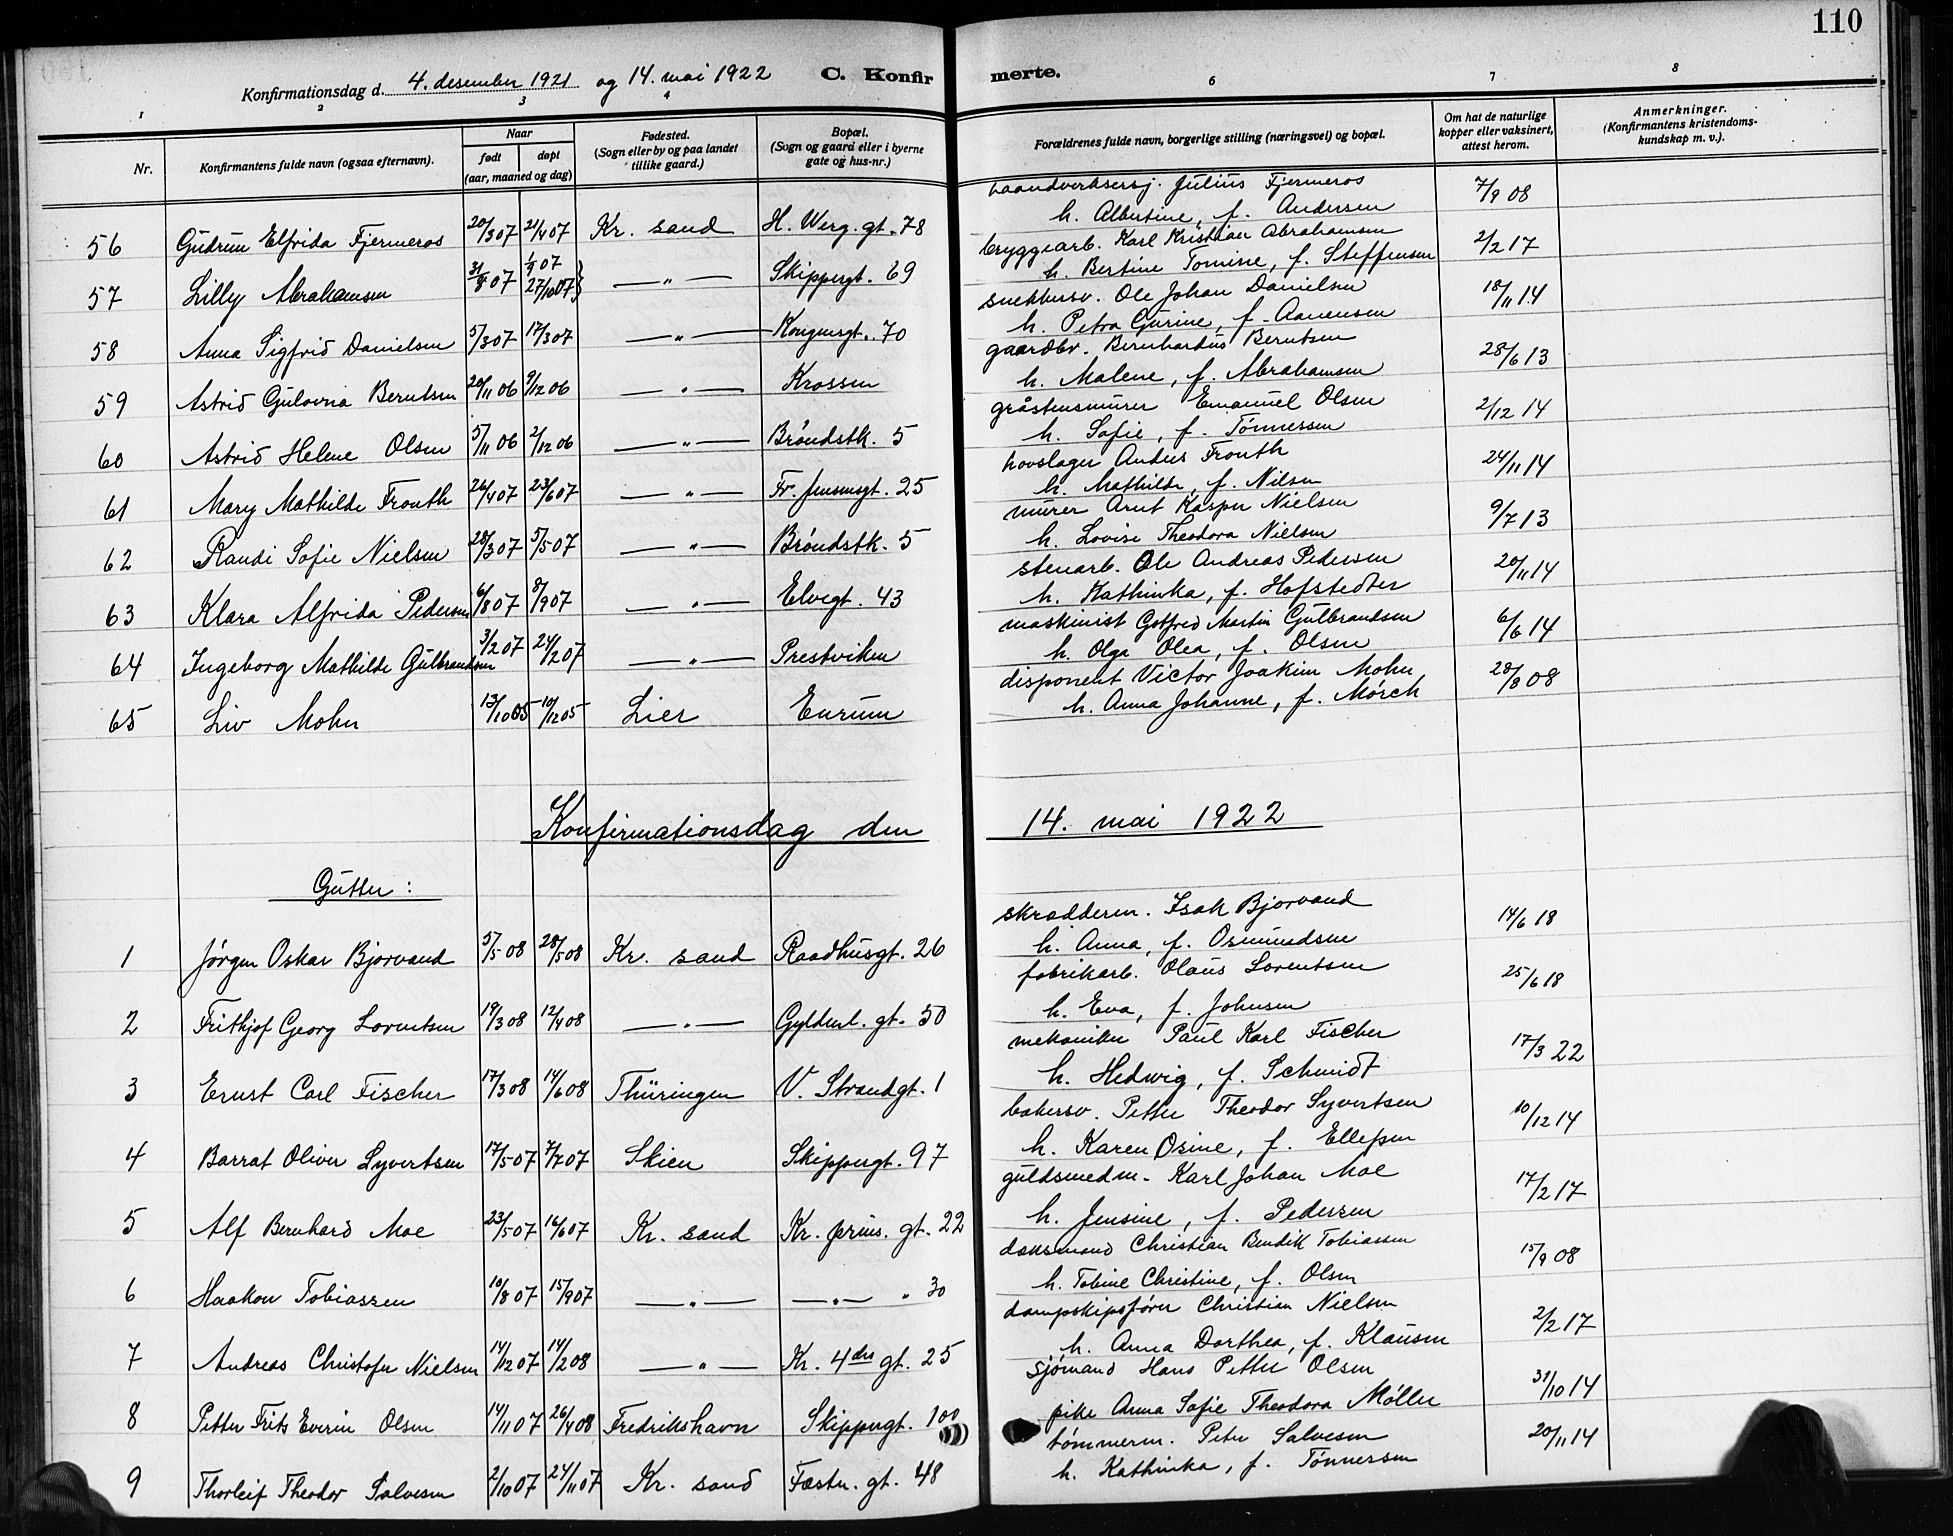 110
Konfirmationsdag d. 4. desember 1921 og 14. mai 1922 C. Konfirmerte.
1 2 3 4 6 7 8
Nr. Konfirmantens fulde navn (ogsaa efternavn). Naar født døpt (aar, maaned og dag) Fødested. (Sogn eller by og paa landet tillike gaard.) Bopæl. (Sogn og gaard eller i byerne gate og hus-nr.) Forældrenes fulde navn, borgerlige stilling (næringsvei) og bopæl. Om hat de naturlige kopper eller vaksinert, attest herom. Anmerkninger. (Konfirmantens kristendoms-kundskap m. v.).
haandverksersj. Julius Fjermeros 7/9 08
56 Gudrun Elfrida Fjermeros 20/3 07 21/4 07 Kr. sand H. Werg. gt. 78 h. Albertine, f. Andersen
bryggearb. Karl Kristian Abrahamsen 2/2 17
57 Lilly Abrahamsen 31/8 07 1/9 07 27/10 07} —"— Skippergt. 69 h. Bertine Tomine, f. Steffensen
snekkersv. Ole Johan Danielsen 18/11 14
58 Anna Sigfrid Danielsen 5/3 07 17/3 07 —"— Kongensgt. 70 h. Petra Gurine, f. Aanensen
gaardbr. Bernhardus Berntsen 28/6 13
59 Astrid Gulovna Berntsen 20/11 06 9/12 06 —"— Krossen h. Malene, f. Abrahamsen
gråstensmurer Emanuel Olsen 2/12 14
60 Astrid Helene Olsen 5/11 06 2/12 06 —"— Brøndstk. 5 h. Sofie, f. Tønnessen
hovslager Anders Frouth 24/11 14
61 Mary Mathilde Frouth 26/4 07 23/6 07 —"— Fr. Jensensgt. 25 h. Mathilde, f. Nilsen
murer Arnt Kasper Nielsen 9/7 13
62 Randi Sofie Nielsen 28/3 07 5/5 07 —"— Brøndstk. 5 h. Lovise Theodora Nielsen
stenarb. Ole Andreas Pedersen 20/11 14
63 Klara Alfrida Pedersen 6/8 07 8/9 07 —"— Elvegt. 43 h. Kathinka, f. Hofstedter
maskinist Gotfred Martin Gulbrandsen 6/6 14
64 Ingeborg Mathilde Gulbrandsen 3/2 07 24/2 07 —"— Prestviken h. Olga Olea, f. Olsen
disponent Victor Joakim Mohn 28/8 08
65 Liv Mohn 13/10 05 10/12 05 Lier Enrum h. Anna Johanne, f. Mørch
Konfirmationsdag den 14. mai 1922
Gutter:
skrædderm. Isak Bjorvand 14/6 18
1 Jørgen Oskar Bjorvand 5/5 08 28/5 08 Kr. sand Raadhusgt. 26 h. Anna, f. Osmundsen
fabrikarb. Olaus Lorentsen 25/6 18
2 Frithjof Georg Lorentsen 19/3 08 12/4 08 —"— Gyldenl. gt. 50 h. Eva, f. Johnsen
mekaniker Paul Karl Fischer 17/3 22
3 Ernst Carl Fischer 17/3 08 14/6 08 Thüringen V. Strandgt. 1 h. Hedwig, f. Schmidt
bakersv. Petter Theodor Syvertsen 10/12 14
4 Barrat Oliver Syvertsen 17/5 07 7/7 07 Skien Skippergt. 97 h. Karen Osine, f. Ellefsen
guldsmedm. Karl Johan Moe 17/2 17
5 Alf Bernhard Moe 23/5 07 16/6 07 Kr. sand Kr. prins. gt. 22 h. Jensine, f. Pedersen
dæksmand Christian Bendik Tobiassen 15/9 08
6 Haakon Tobiassen 10/8 07 15/9 07 —"— —"— " 30 h. Tobine Christine, f. Olsen
dampskipsfører Christian Nielsen 2/2 17
7 Andreas Christofer Nielsen 14/12 07 14/2 08 —"— Kr. 4des gt. 25 h. Anna Dorthea, f. Klausen
sjømand Hans Petter Olsen 31/10 14
8 Petter Frits Everin Olsen 14/11 07 26/4 08 Fredrikshavn Skippergt. 100 pike Anna Sofie Theodora Møller
tømmerm. Peter Salvesen 20/11 14
9 Thorleif Theodor Salvesen 2/10 07 24/11 07 Kr. sand Fæstn. gt. 48 h. Kathinka, f. Tønnessen